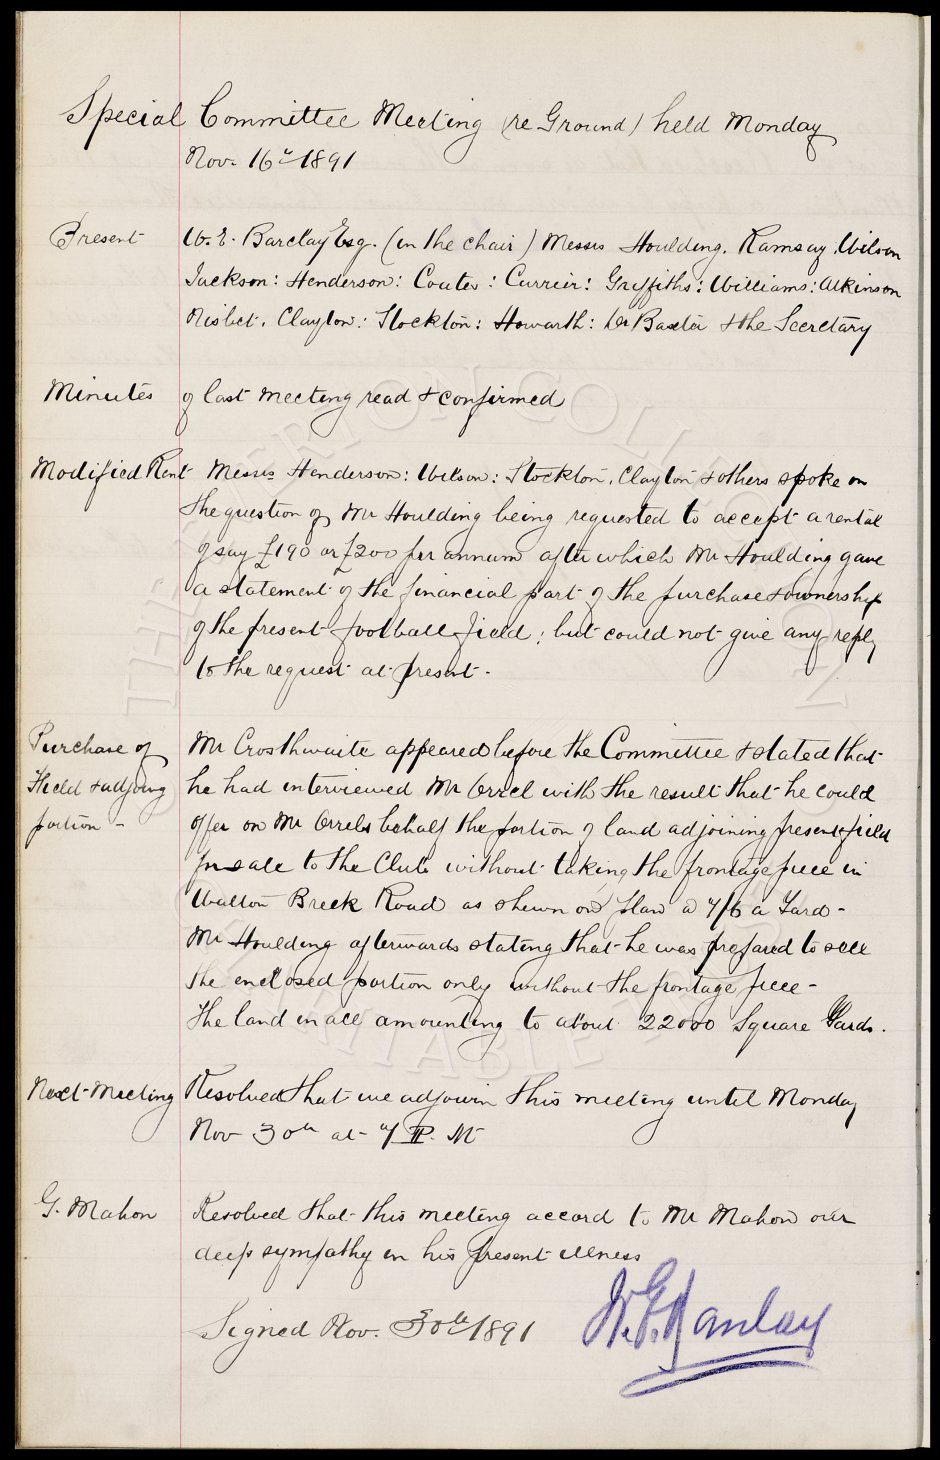 Special Committee Meeting (re Ground) held Monday
Nov. 16th 1891
Present W. E. Barclay Esq. (in the chair) Messrs Houlding. Ramsay. Wilson
Jackson: Henderson: Coates: Currier: Griffiths: Williams: Atkinson
Nisbet. Clayton: Stockton: Howarth: Dr Baxter & the Secretary
Minutes of last meeting read & confirmed
Modified Rent Messrs Henderson: Wilson: Stockton. Clayton & others spoke on
the question of Mr Houlding being requested to accept a rental
of say £190 or £200 per annum after which Mr Houlding gave
a statement of the financial part of the purchase & ownership
of the present football field; but could not give any reply
to the request at present.
Purchase of Mr Crosthwaite appeared before the Committee & stated that
Field & adjoing he had interviewed Mr Orrel with the result that he could
portion - offer on Mr Orrels behalf the portion of land adjoining present field
for sale to the Club without taking the frontage piece in
Walton Breck Road as shewn on plan @ 7/6 a Yard -
Mr Houlding afterwards stating that he was prepared to sell
the enclosed portion only without the frontage piece -
the land in all amounting to about 22000 Square Yards.
Next Meeting Resolved that we adjourn this meeting until Monday
Nov 30th at 7 P. M
G. Mahon Resolved that this meeting accord to Mr Mahon our
deep sympathy in his present illness
Signed Nov. 30th 1891
THE EVERTON COLLECTION
CHARITABLE TRUST